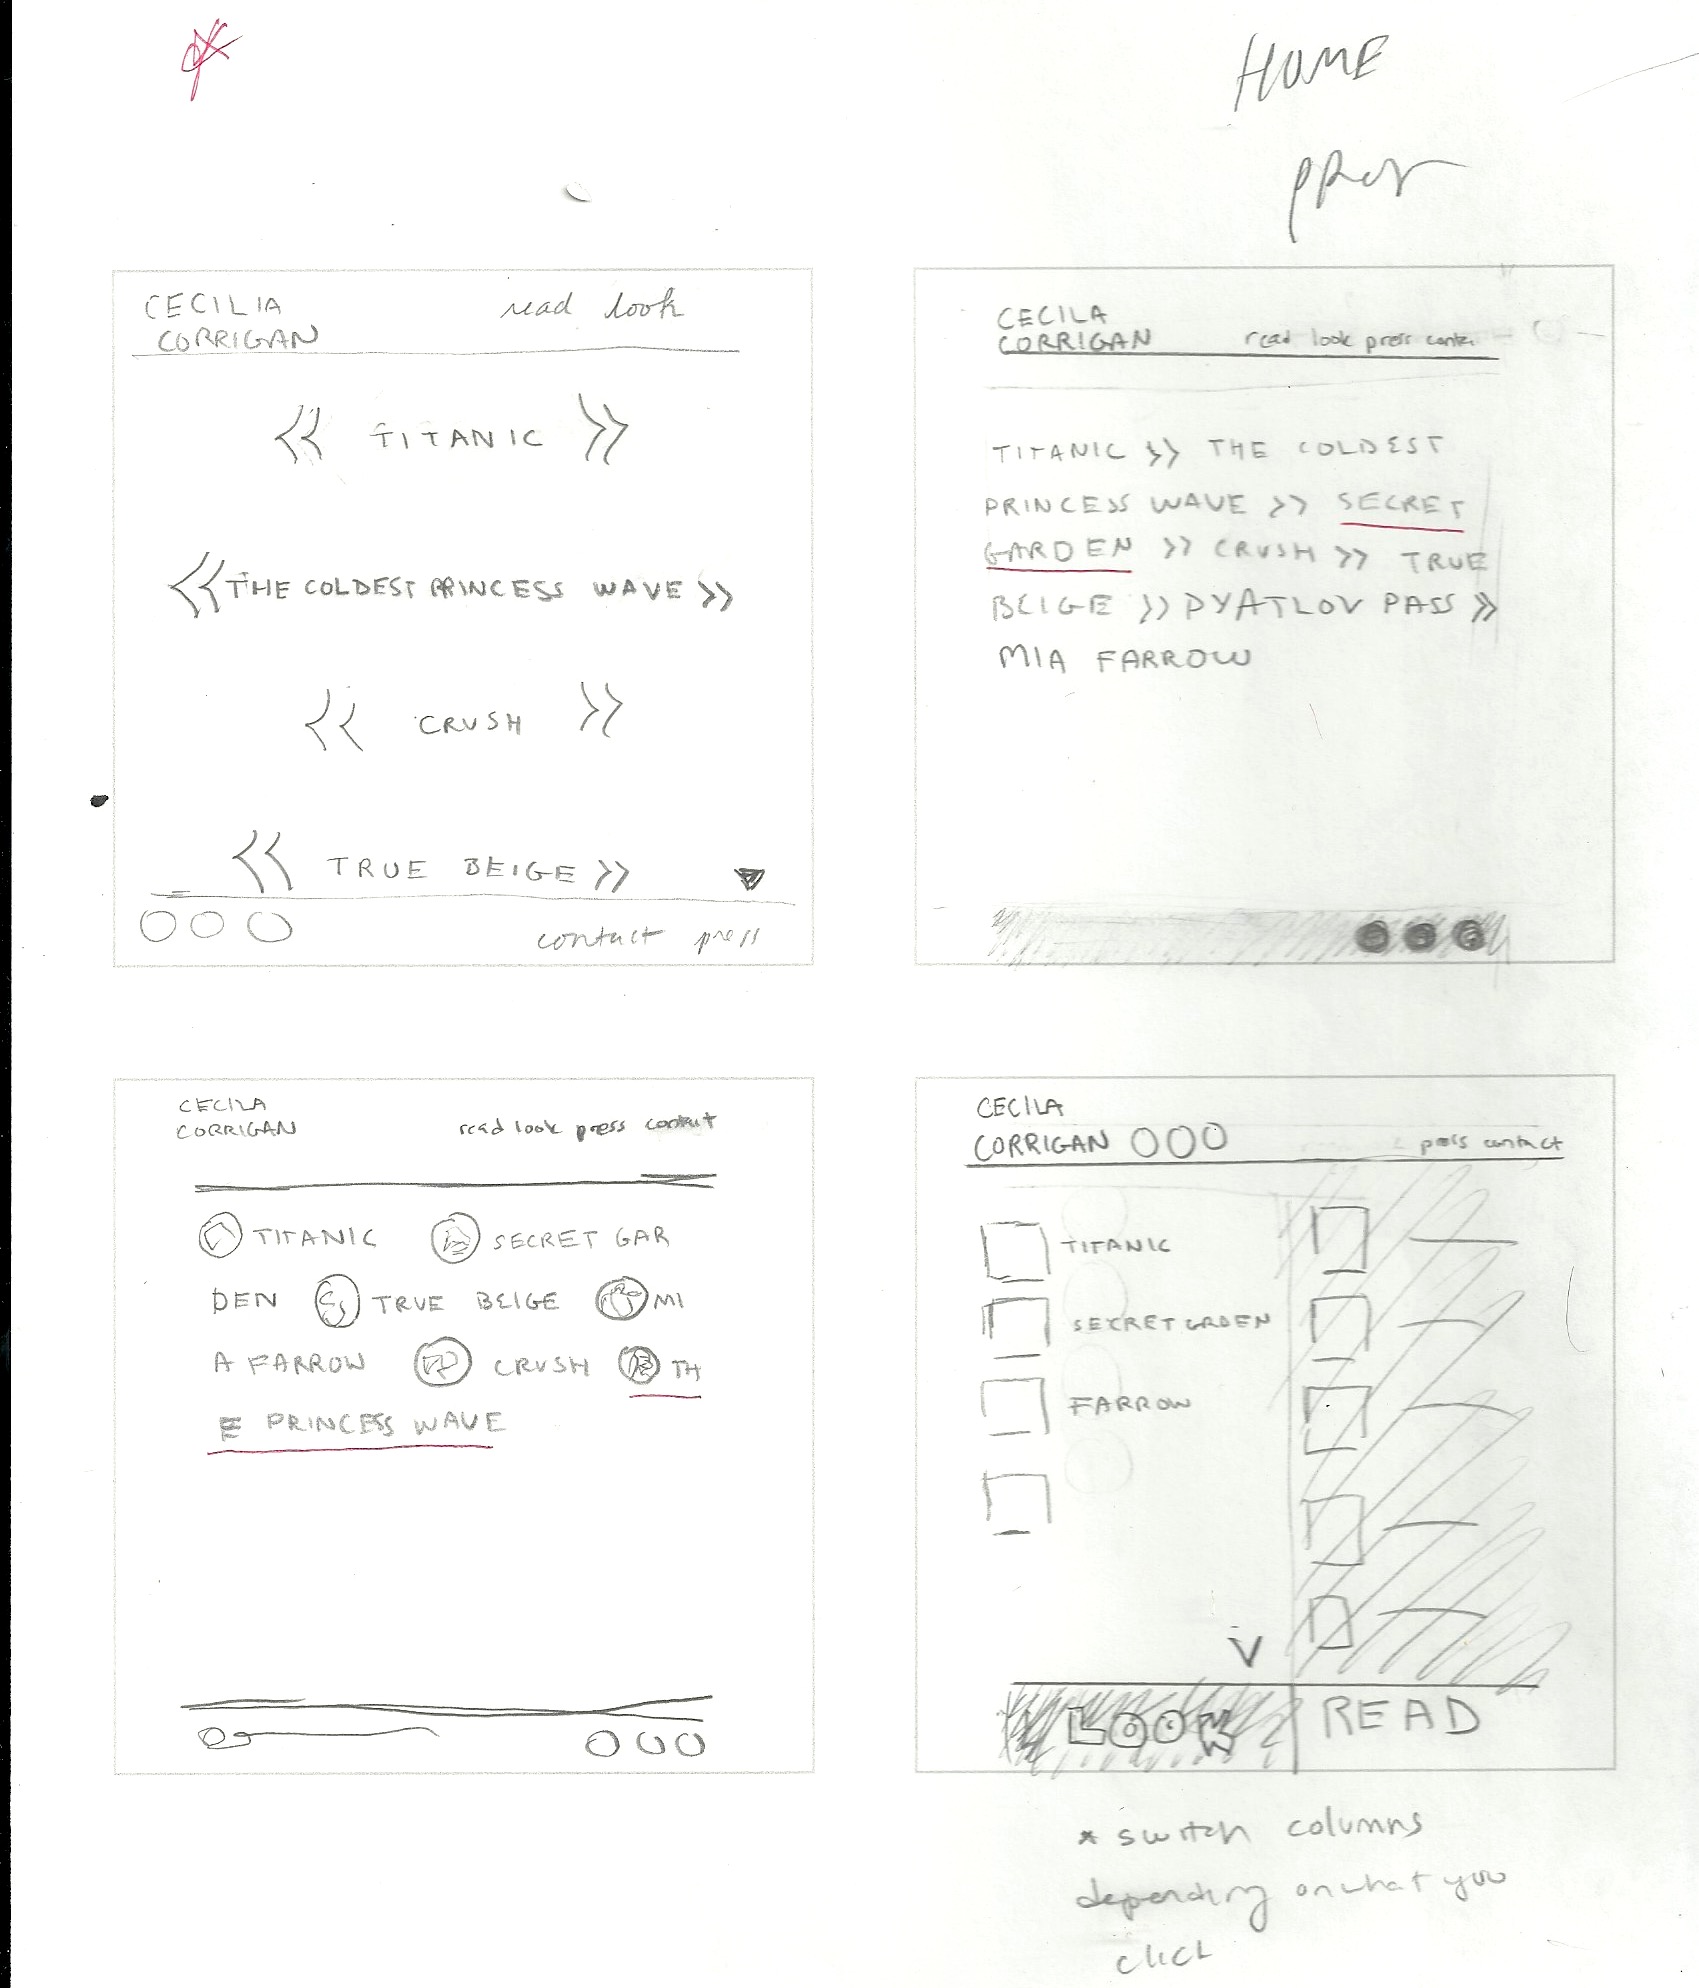 HOME
CECILIA
CORRIGAN
read look
<< TITANIC >>
<< THE COLDEST PRINCESS WAVE >>
<< CRUSH >>
<< TRUE BEIGE >>
contact press
CECILA
CORRIGAN
read look press
TITANIC >> THE COLDEST
PRINCESS WAVE >> SECRET
GARDEN >> CRUSH >> TRUE
BEIGE >> DYATLOV PASS >>
MIA FARROW
CECILA
CORRIGAN
read look press contact
TITANIC SECRET GAR
DEN TRUE BEIGE MI
A FARROW CRUSH TH
E PRINCESS WAVE
CECILA
CORRIGAN
press contact
TITANIC
SECRET GRDEN
FARROW
LOOK READ
* switch columns
depending on what you
click